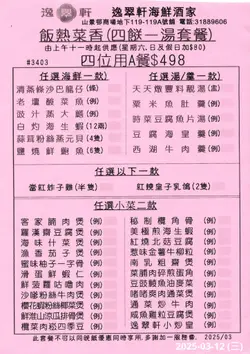 逸翠軒 逸翠軒海鮮酒家
山景邨商場地下119-119A號舖 電話:31889606
飯熱菜香(四餸一湯套餐)
由上午十一時起供應(星期六,日及假日加$80)
#3403 四位用A餐$498
任選海鮮一款)
清蒸沙巴龍仔(條)
老壇酸菜魚(例)
豉汁蒸大鱔(例)
白灼海生蝦(12兩)
蒜茸粉絲蒸元貝(4隻)
鹽燒鮮鮑魚(6隻)
任選湯/羹一款)
天天燉豐料靚湯(盅)
粟米魚肚羹(例)
時菜豆腐魚片湯(例)
豆腐海皇羹(例)
西湖牛肉羹(例)
任選以下一款
當紅炸子雞(半隻)
紅燒皇子乳鴿(2隻)
任選小菜二款
客家腩肉煲(例)
羅漢齋豆腐煲(例)
海味什菜煲(例)
漁香茄子煲(例)
蜜味柚子一字骨(例)
滑蛋鮮蝦仁(例)
鮮菠蘿咕嚕肉(例)
沙嗲粉絲牛肉煲(例)
椒鹽九肚魚(例)
鮮淮山涼瓜排骨(例)
欖菜肉崧四季豆(例)
秘制欖角骨(例)
美極煎海生蝦(例)
紅燒豆腐(例)
魚味金薯牛柳粒(例)
南乳粗齋煲(例)
菜脯肉碎煎蛋角(例)
豆豉鯪魚油麥菜(例)
啫啫爽肉通菜煲(例)
通菜炒牛肉(例)
鹹魚茸蒸肉餅(例)
逸翠軒小炒皇(例)
此套餐不可以同咭紙優惠同時享用,多謝加一服務費. 2025/03
2025-03-12(三)